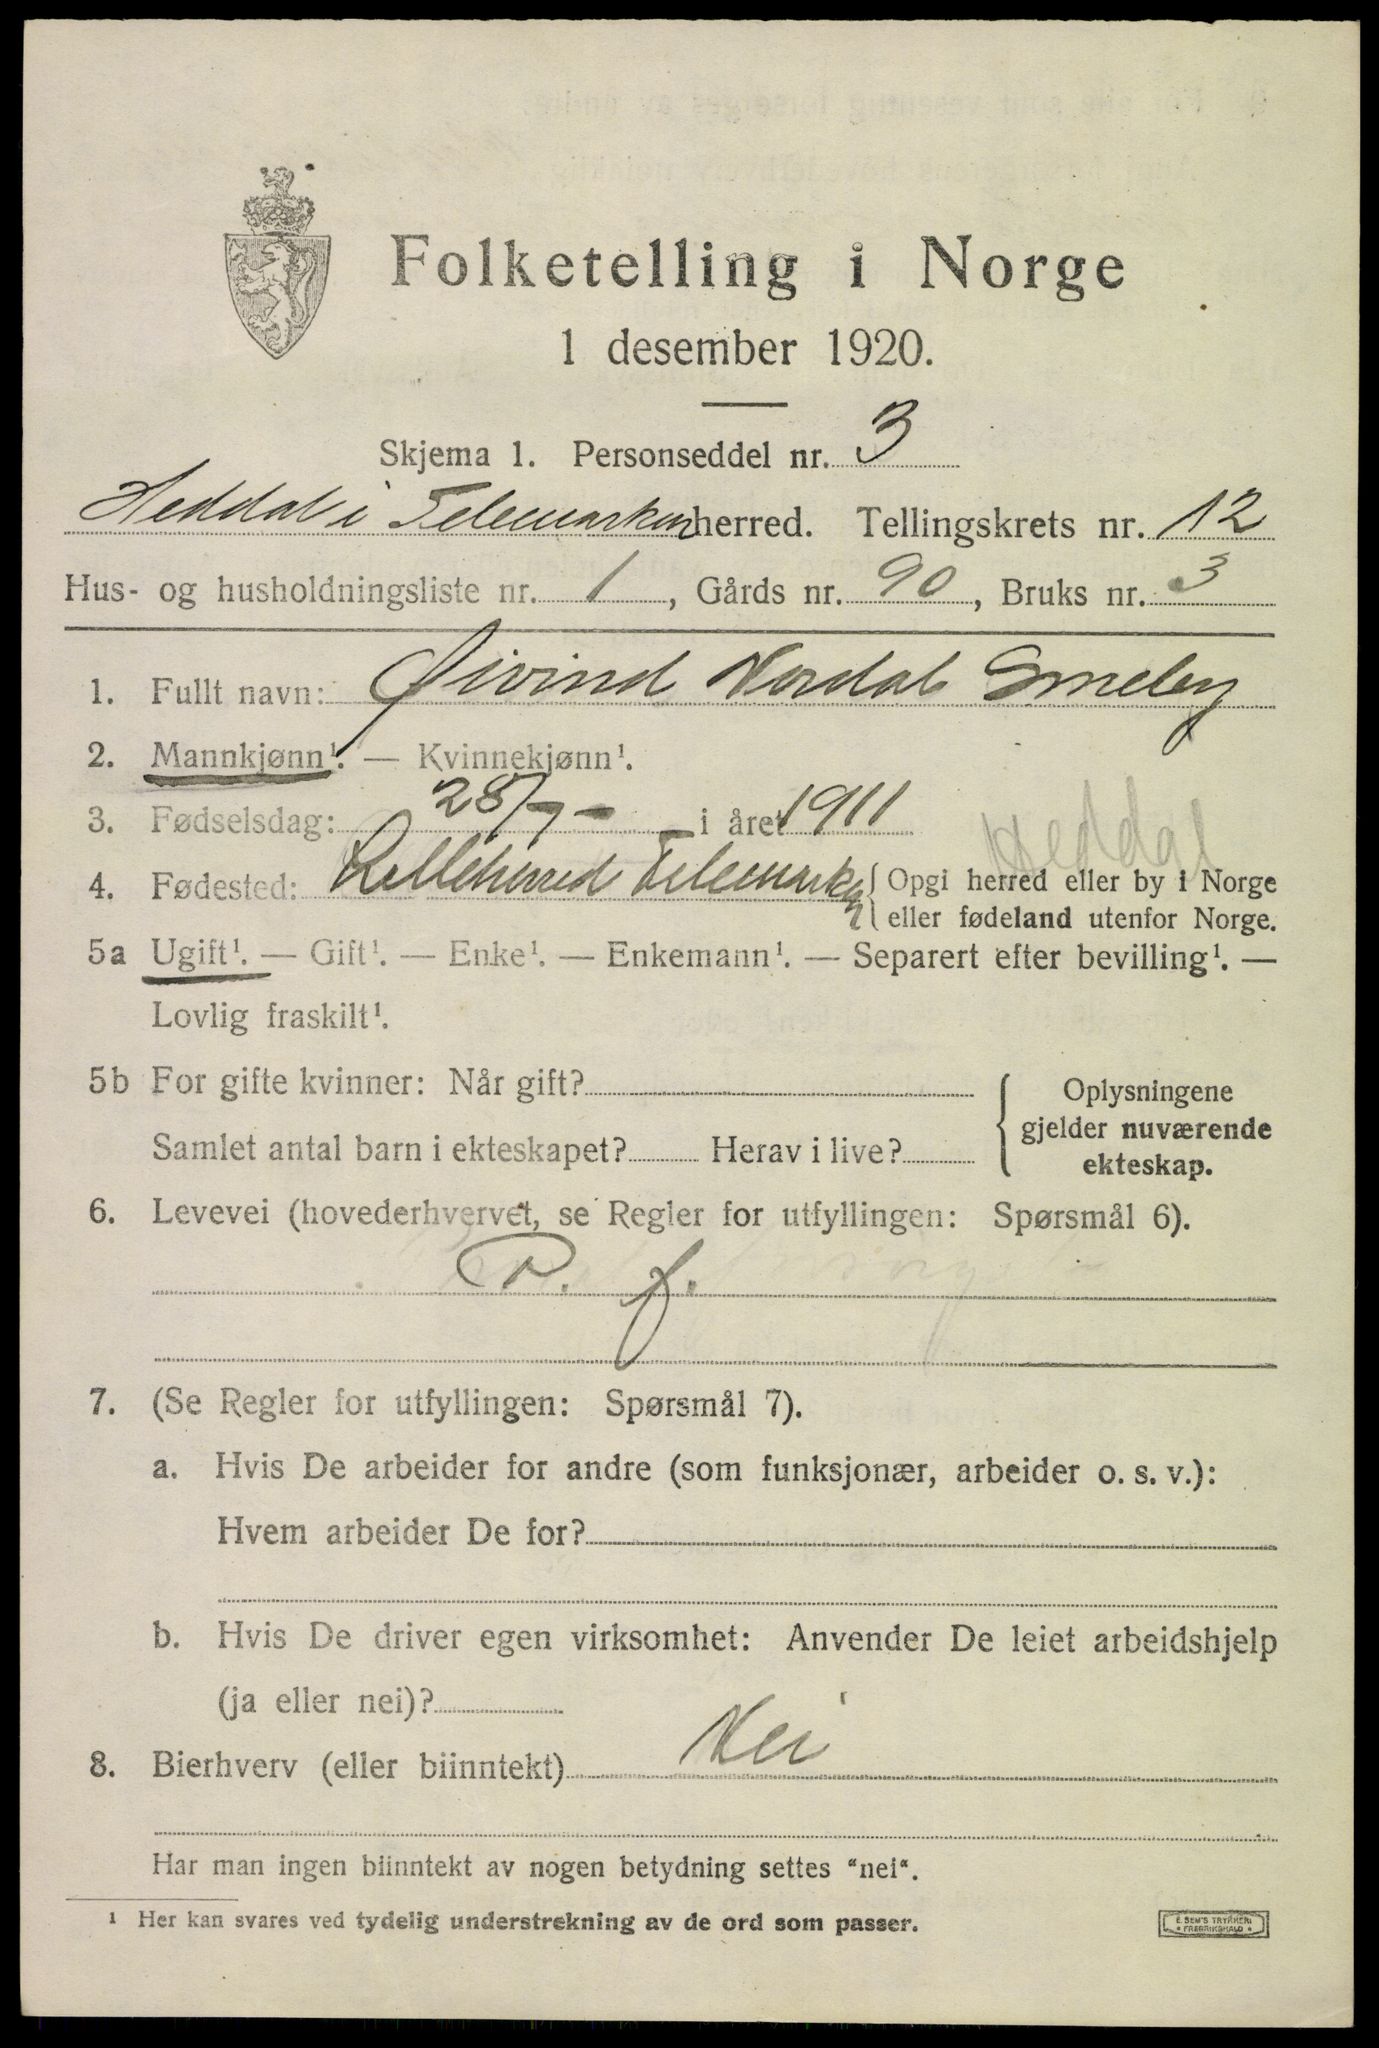 Folketelling i Norge
1 desember 1920.
Skjema 1. Personseddel nr. 3
Heddal i Telemarken herred. Tellingskrets nr. 12
Hus- og husholdningsliste nr. 1, Gårds nr. 90, Bruks nr. 3
1. Fullt navn: Øivind Nordal Smeby
2. Mannkjønn¹. — Kvinnekjønn¹.
3. Fødselsdag: 28/7 - i året 1911
Heddal
4. Fødested: Lilleherred Telemarken { Opgi herred eller by i Norge
eller fødeland utenfor Norge.
5a Ugift¹. — Gift¹. — Enke¹. — Enkemann¹. — Separert efter bevilling¹. —
Lovlig fraskilt¹.
5b For gifte kvinner: Når gift?
Samlet antal barn i ekteskapet? Herav i live?
{ Oplysningene
gjelder nuværende
ekteskap.
6. Levevei (hovederhvervet, se Regler for utfyllingen: Spørsmål 6).
P. f.
7. (Se Regler for utfyllingen: Spørsmål 7).
a. Hvis De arbeider for andre (som funksjonær, arbeider o. s. v.):
Hvem arbeider De for?
b. Hvis De driver egen virksomhet: Anvender De leiet arbeidshjelp
(ja eller nei)?
8. Bierhverv (eller biinntekt) Nei
Har man ingen biinntekt av nogen betydning settes "nei".
¹ Her kan svares ved tydelig understrekning av de ord som passer.
E. SEM'S TRYKKERI
* FREDRIKSHALD *